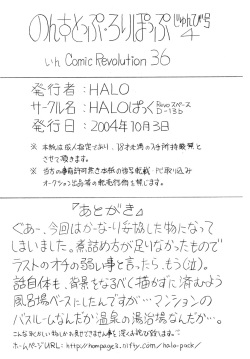 のんすとっぷ・ろりぽっぷ 準備号 4
いん Comic Revolution 36
発行者：HALO
サークル名：HALOぱっく Revoスペース D-13b
発行日：2004年10月3日
※ 本紙は成人指定であり、18才未満の入手所持購読を
させて頂きます。
※ 当方の事前許可無き本紙の複写転載・PC取り込み
オークション出品等の転売行為を禁じます。
『あとがき』
ぐあー、今回はかーなり妥協した物となって
しまいました。煮詰め方が足りなかったもので
ラストのオチの弱い事と言ったら、もう(泣)。
話自体も、背景をなるべく描かずに済むよう
風呂場ベースにしたんですが…マンションの
バスルームなんだか温泉の湯浴場なんだか…。
こんな恥しい物しかお見せできません事を深くお詫び致します。
ホームページURL：http://homepage3.nifty.com/halo-pack/